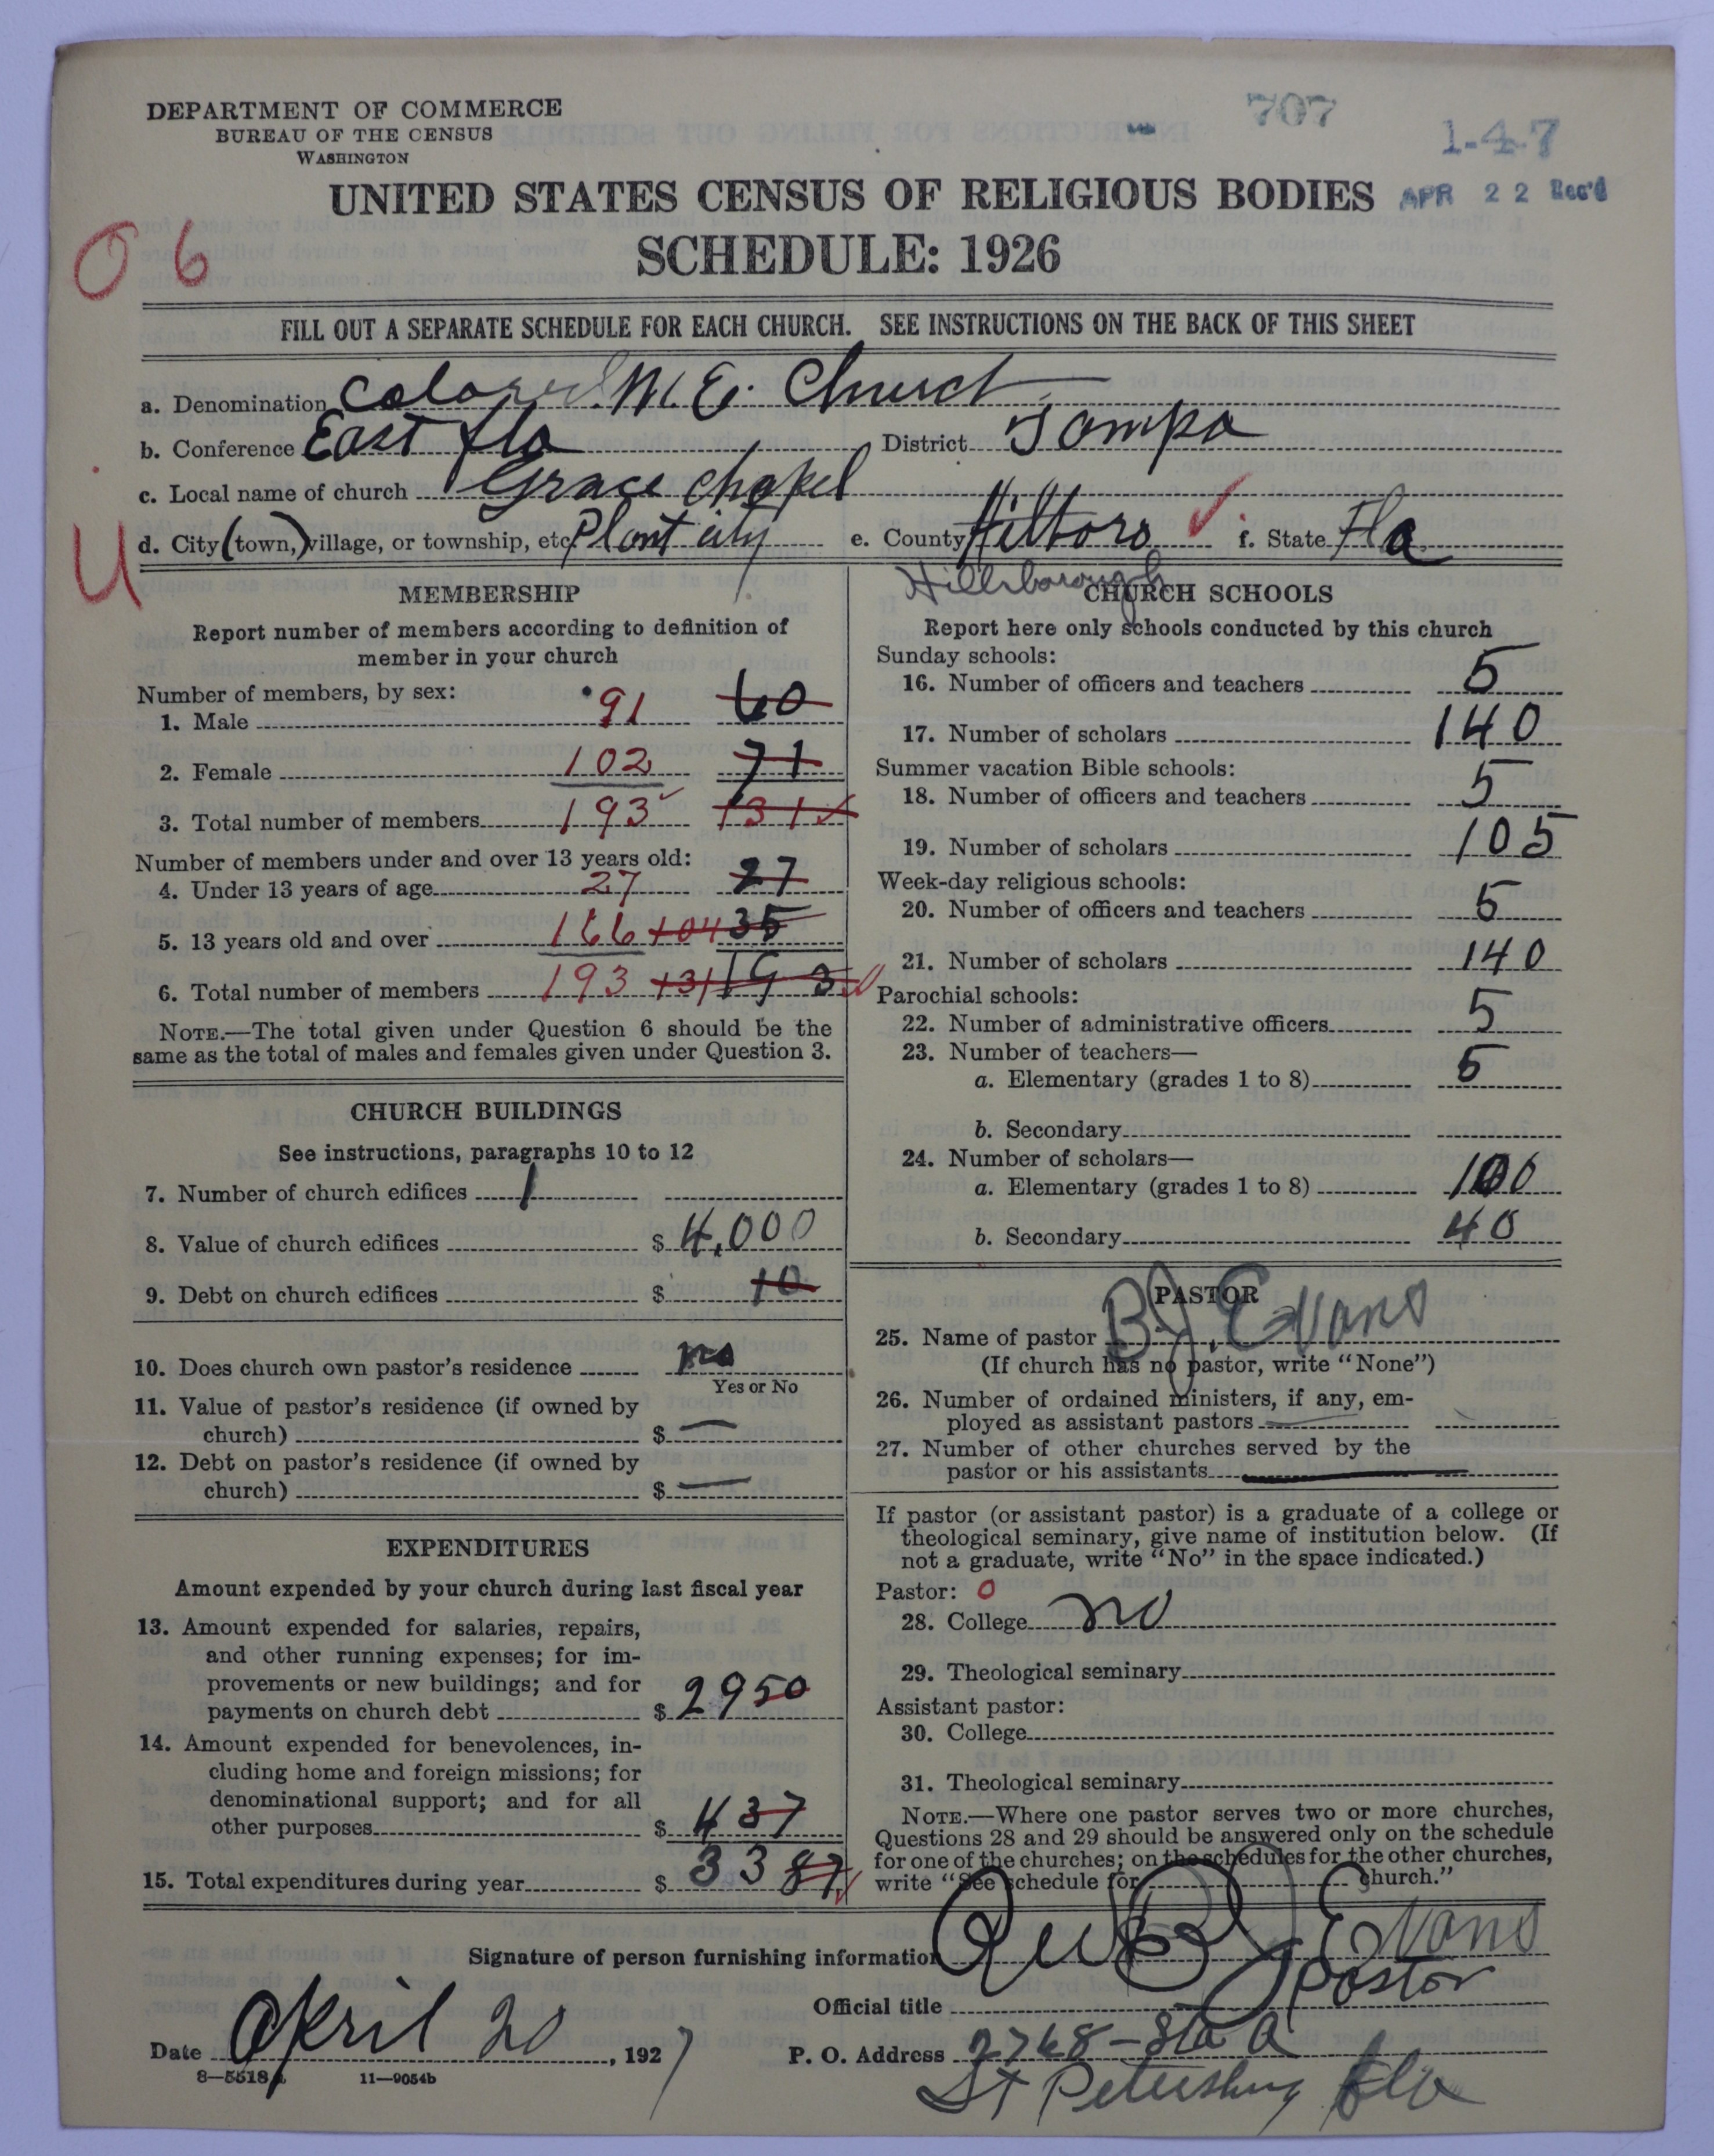 DEPARTMENT OF COMMERCE
BUREAU OF THE CENSUS
WASHINGTON
707
1-47
APR 22 Rec'd
UNITED STATES CENSUS OF RELIGIOUS BODIES
SCHEDULE: 1926
0 6
FILL OUT A SEPARATE SCHEDULE FOR EACH CHURCH. SEE INSTRUCTIONS ON THE BACK OF THIS SHEET
a. Denomination Colored M. E. Church
b. Conference East Fla District Tampa
c. Local name of church Grace Chapel
d. City (town,) village, or township, etc. Plant city e. County Hilboro f. State Fla
U
Hillsborough
MEMBERSHIP
Report number of members according to definition of
member in your church
Number of members, by sex:
1. Male 91 60
2. Female 102 71
3. Total number of members 193 131
Number of members under and over 13 years old:
4. Under 13 years of age 27 27
5. 13 years old and over 166 104 35
6. Total number of members 193 131 193
NOTE.—The total given under Question 6 should be the
same as the total of males and females given under Question 3.
CHURCH BUILDINGS
See instructions, paragraphs 10 to 12
7. Number of church edifices 1
8. Value of church edifices $ 4,000
9. Debt on church edifices $ 10
10. Does church own pastor's residence no
Yes or No
11. Value of pastor's residence (if owned by
church) $ —
12. Debt on pastor's residence (if owned by
church) $ —
EXPENDITURES
Amount expended by your church during last fiscal year
13. Amount expended for salaries, repairs,
and other running expenses; for im-
provements or new buildings; and for
payments on church debt $ 2950
14. Amount expended for benevolences, in-
cluding home and foreign missions; for
denominational support; and for all
other purposes $ 437
15. Total expenditures during year $ 3387
CHURCH SCHOOLS
Report here only schools conducted by this church
Sunday schools:
16. Number of officers and teachers 5
17. Number of scholars 140
Summer vacation Bible schools:
18. Number of officers and teachers 5
19. Number of scholars 105
Week-day religious schools:
20. Number of officers and teachers 5
21. Number of scholars 140
Parochial schools:
22. Number of administrative officers 5
23. Number of teachers—
a. Elementary (grades 1 to 8) 5
b. Secondary
24. Number of scholars—
a. Elementary (grades 1 to 8) 100
b. Secondary 40
PASTOR
25. Name of pastor B J. Evans
(If church has no pastor, write "None")
26. Number of ordained ministers, if any, em-
ployed as assistant pastors —
27. Number of other churches served by the
pastor or his assistants —
If pastor (or assistant pastor) is a graduate of a college or
theological seminary, give name of institution below. (If
not a graduate, write "No" in the space indicated.)
Pastor: 0
28. College no
29. Theological seminary
Assistant pastor:
30. College
31. Theological seminary
NOTE.—Where one pastor serves two or more churches,
Questions 28 and 29 should be answered only on the schedule
for one of the churches; on the schedules for the other churches,
write "See schedule for church."
Signature of person furnishing information B J Evans
Official title pastor
Date April 20, 1927 P. O. Address 2768 - Sta A
St Petersburg Fla
8—5518a 11—9054b